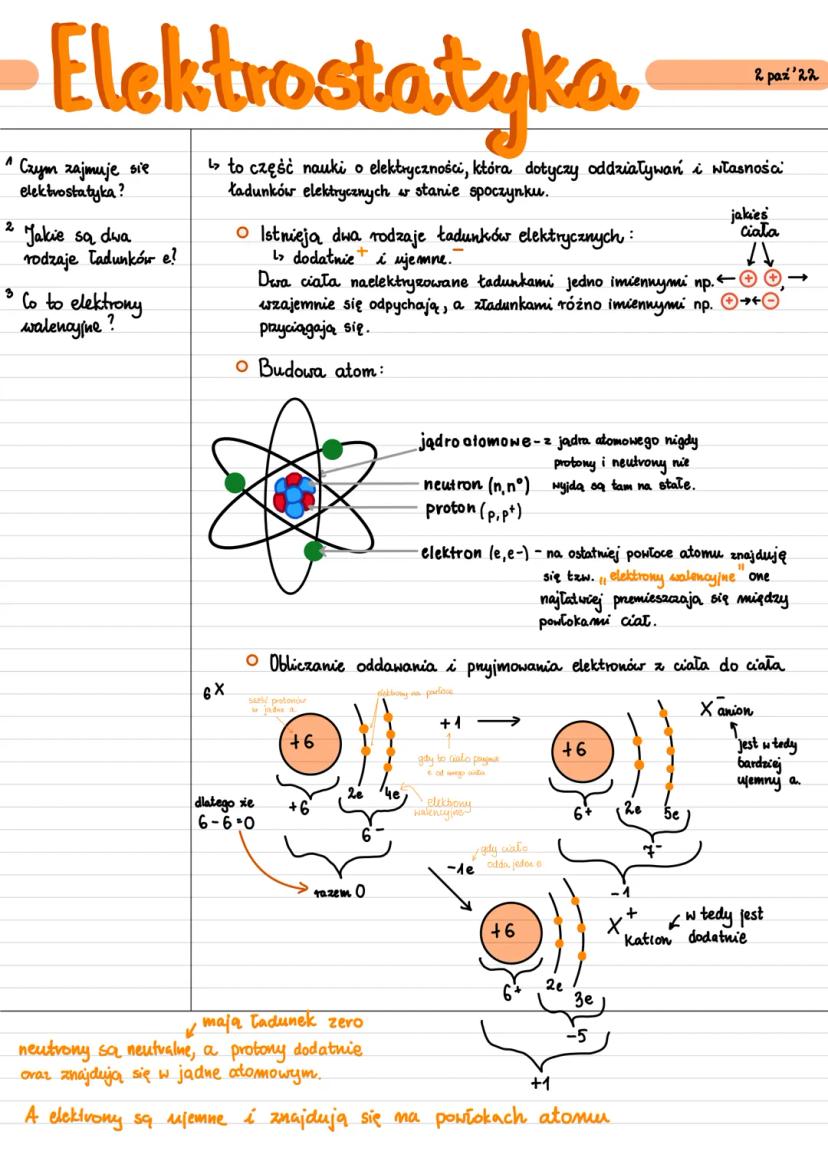 Elektrostatyka
2 paź '22
1 Czym zajmuje się
elektrostatyka?
2 Jakie są dwa
rodzaje ładunków e?
3 Co to elektrony
walencyjne?
↳ to część nauki o elektryczności, która dotyczy oddziaływań i własności
ładunków elektrycznych w stanie spoczynku.
Istnieją dwa rodzaje ładunków elektrycznych:
↳ dodatnie + i ujemne. −
jakieś
ciała
Dwa ciała naelektryzowane ładunkami jedno imiennymi np. ← + + , →
wzajemnie się odpychają, a zładunkami różno imiennymi np. + → ← −
przyciągają się.
Budowa atom:
jądro atomowe - z jądra atomowego nigdy
protony i neutrony nie
wyjdą są tam na stałe.
neutron (n, n°)
proton (p, p+)
elektron (e, e-) - na ostatniej powłoce atomu znajdują
się tzw. "elektrony walencyjne" one
najłatwiej przemieszczają się między
powłokami ciał.
Obliczanie oddawania i przyjmowania elektronów z ciała do ciała
6 X
sześć protonów
w jądrze a.
elektrony na powłoce
+6
2e
4e
+6
6-
elektrony
walencyjne
dlatego że
6-6=0
razem 0
+1 →
gdy to ciało przyjmie
e od innego ciała
+6
6+
2e
5e
7-
-1
X− anion
jest wtedy
bardziej
ujemny a.
-1e
gdy ciało
odda jeden e
+6
6+
2e
3e
-5
+1
X+
Kation
wtedy jest
dodatnie
mają ładunek zero
neutrony są neutralne, a protony dodatnie
oraz znajdują się w jądrze atomowym.
A elektrony są ujemne i znajdują się na powłokach atomu